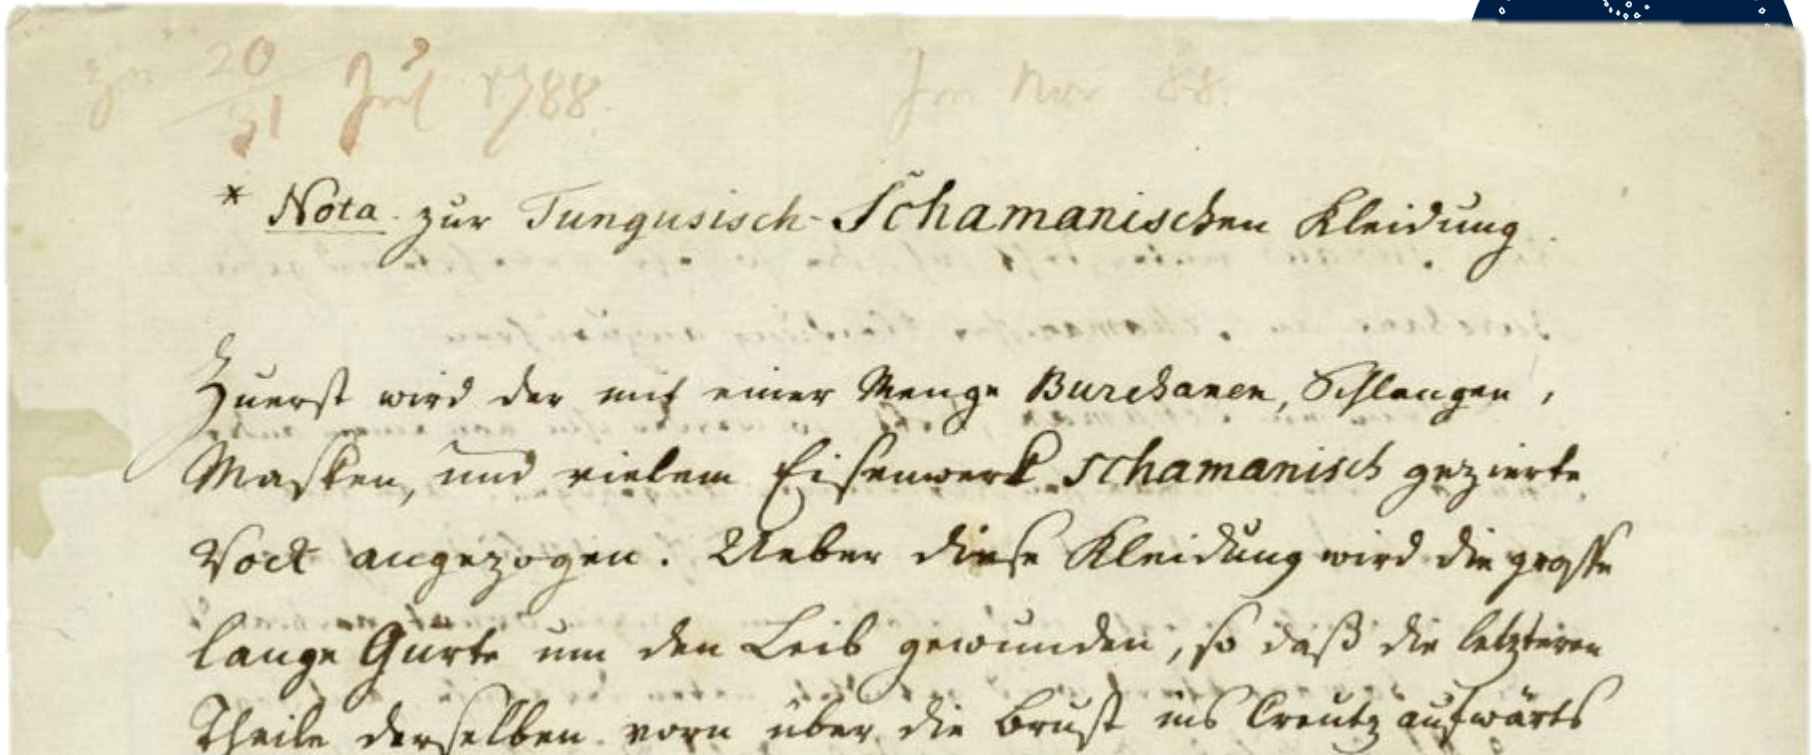 zu 20/31 Jul 1788. Im Nov 88.
* Nota. zur Tungusisch-Schamanischen Kleidung.
Zuerst wird der mit einer Menge Burchanen, Schlangen,
Masken, und vielem Eisenwerk schamanisch gezierte
Rock angezogen. Ueber diese Kleidung wird die grosse
lange Gurte um den Leib gewunden, so daß die letzteren
Theile derselben vorn über die Brust ins Creutz aufwärts